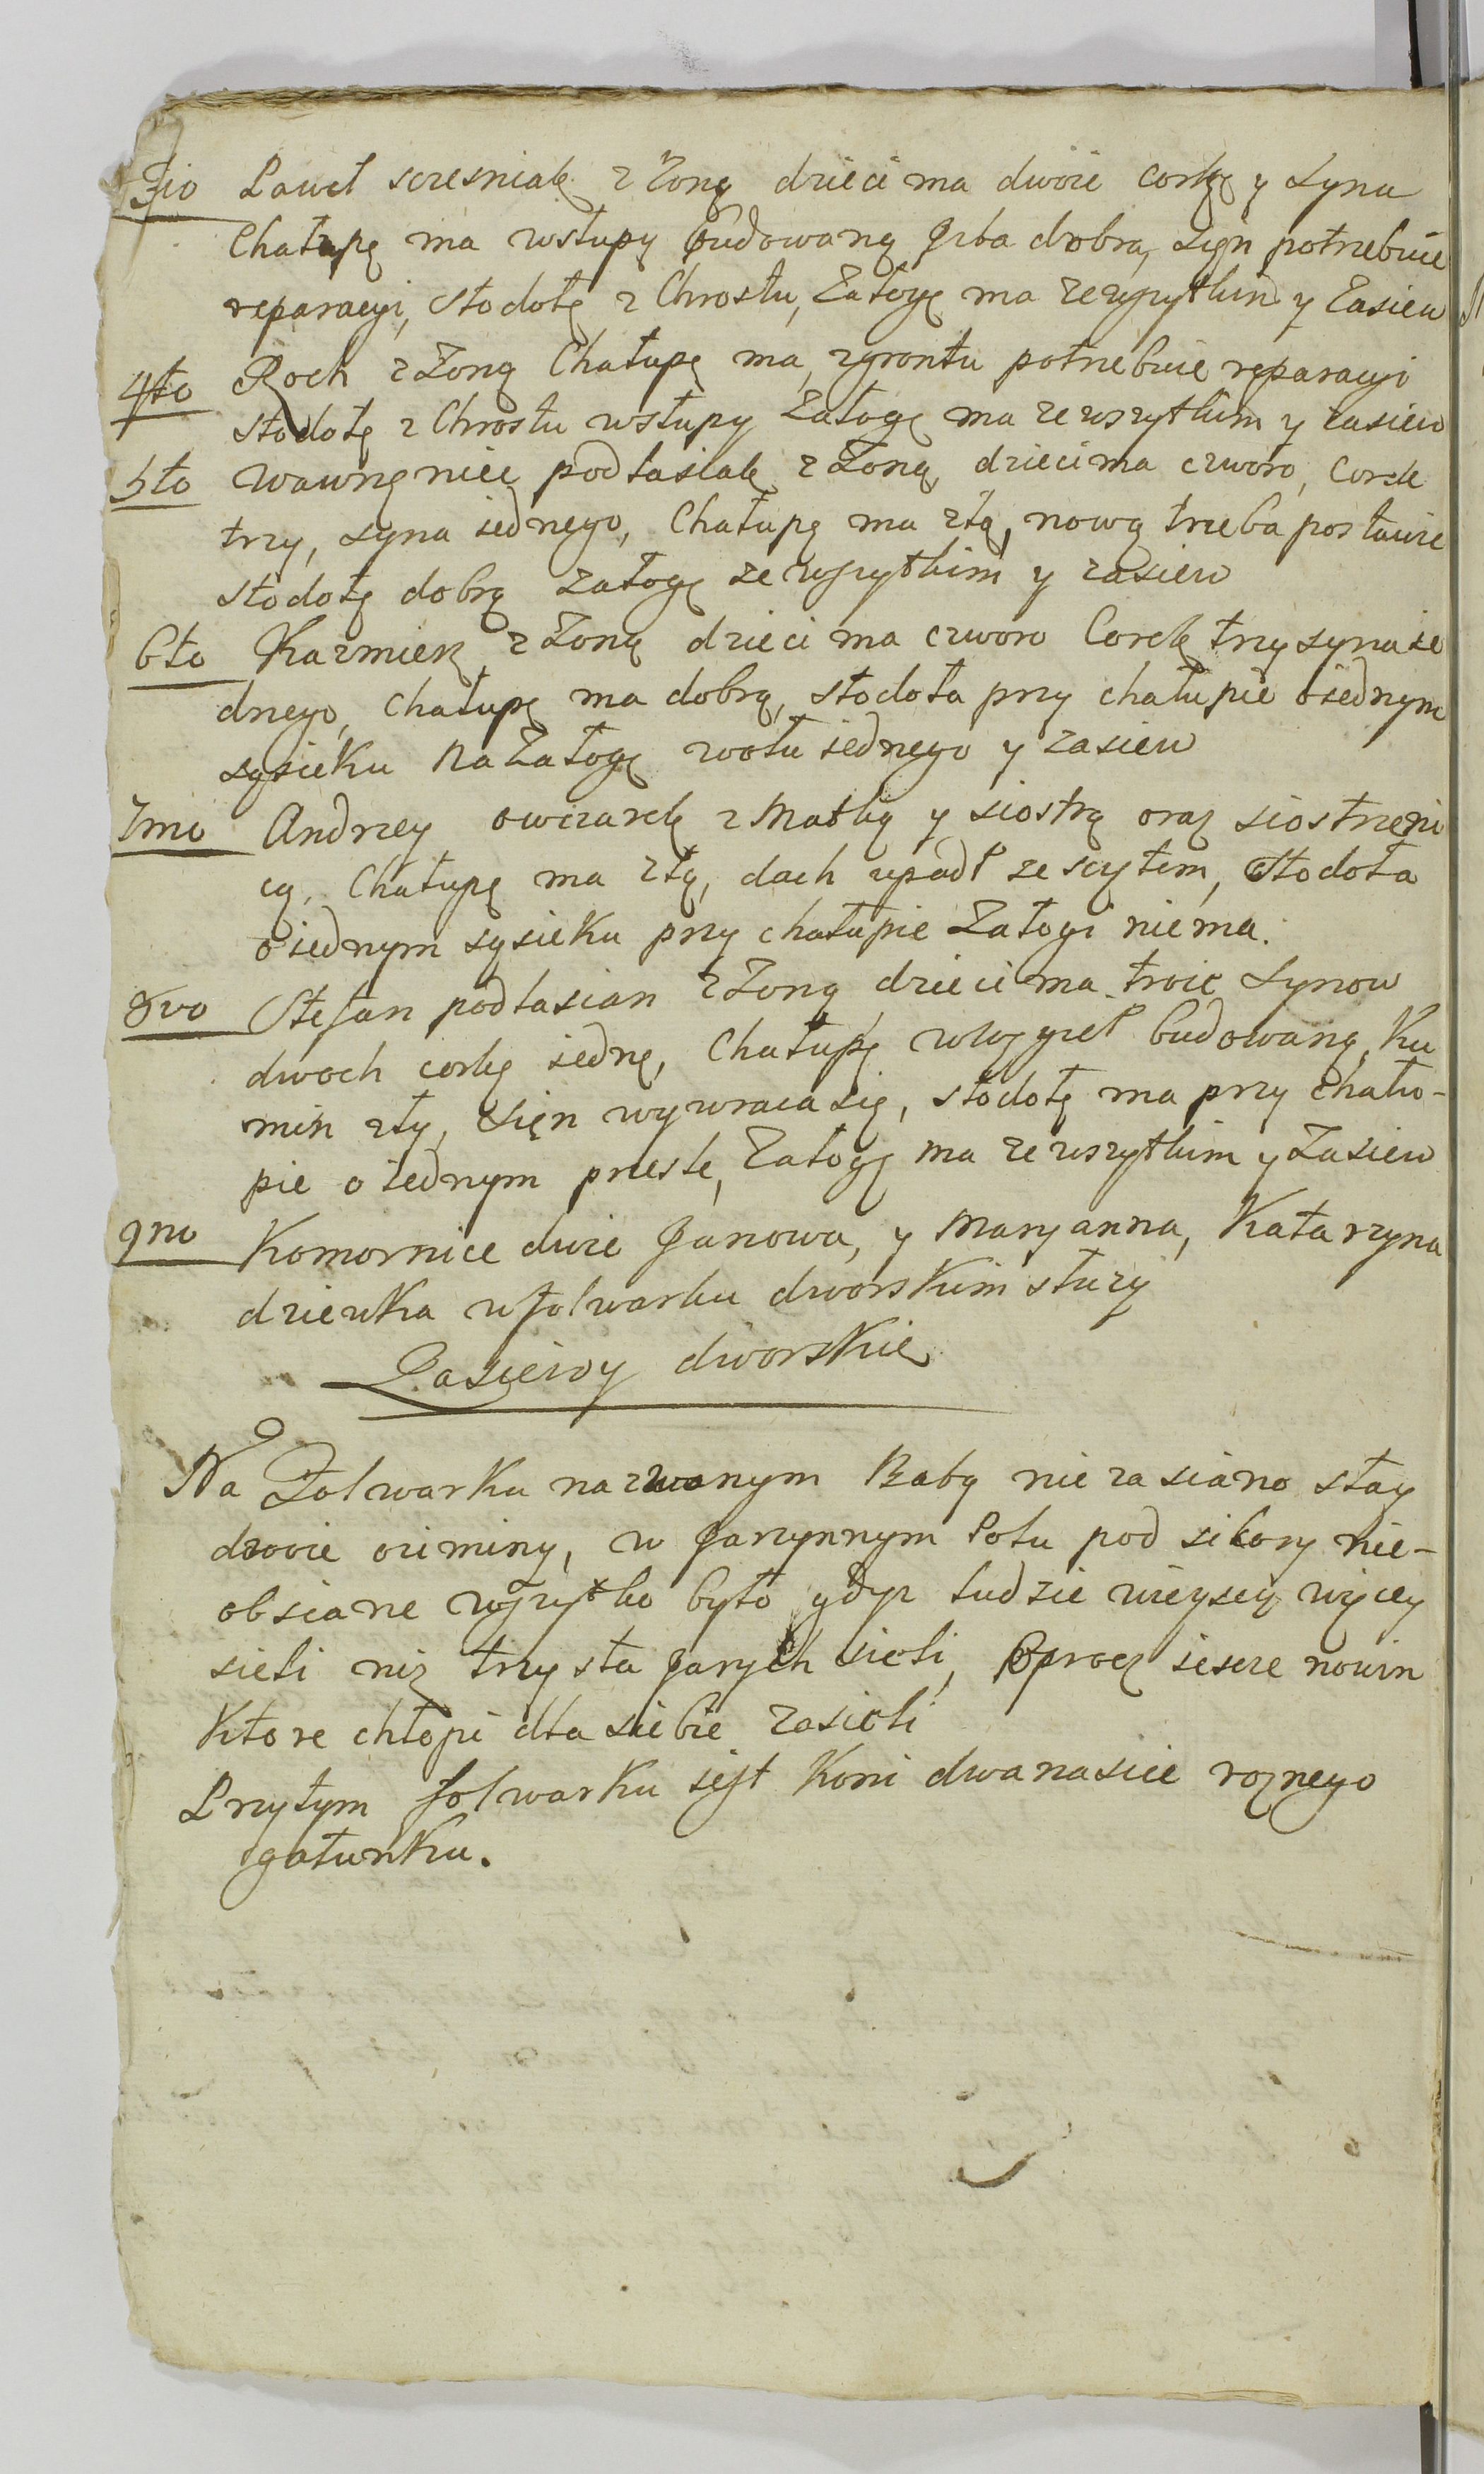 3tio Paweł sczesniak z żoną dzieci ma dwoie corkę y syna
Chałupę ma wsłupy budowaną Jzba dobra, sięn potrzebuie
reparacyi, stodołę z Chrostu, Załogę ma zewszytkim y Zasiew
4to Roch z żoną Chałupę ma, zgrontu potrzebuie reparacyi
stodołę z Chrostu wsłupy Załogę ma zewszytkim y zasiew
5to wawrzęniec podlasiak z żoną, dzieci ma czworo, Corek
trzy, syna iednego, Chałupę ma złą, nową trzeba postawic
stodołę dobrą załogę ze wszytkim y zasiew
6to Kazmierz z żoną dzieci ma czworo Corek trzy syna ie
dnego, Chałupę ma dobrą, stodoła przy chałupie oiednym
sąsieku na Załogę wołu iednego y zasiew
7mo Andrzey owczarek z Matką y siostrą oraz siostrzeni
cą, Chałupę ma złą, dach upadł ze scytem, stodoła
o iednym sąsieku przy chałupie Załogi niema.
8vo Stefan podlasian z żoną dzieci ma troie synow
dwoch corkę iednę, Chałupę wwęgieł budowaną, Ku
min zły, sięn wywraca się, stodołę ma przy chału-
pie o iednym przęśle, Załogę ma ze wszytkim y Zasiew
9no Komornice dwie Janowa, y Maryanna, Katarzyna
dziewka wfolwarku dworskim służy
Zasiewy dworskie
Na Folwarku nazwanym Baby nie zasiano stay
dwoie oziminy, w Jarzynnym Polu pod sikory nie-
obsiane wszytko było gdyz ludzie wieyscy więcey
sieli niz trzysta Jarych sieli, Oprocz iescze nowin
Ktore chłopi dla siebie zasieli
Przytym folwarku iest Koni dwanascie roznego
gatunku.